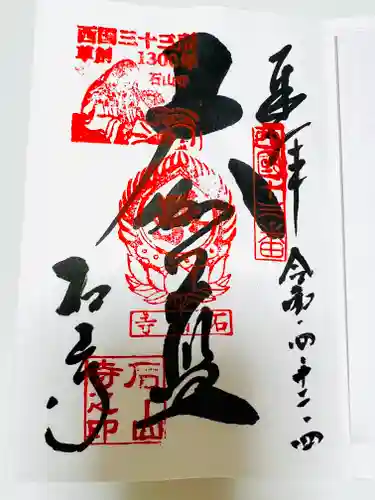 奉拝
西国十三番
令和・四・十二・四
大伽藍
西国三十三所
草創 1300年
石山寺
石山寺
石山寺
石山寺之印